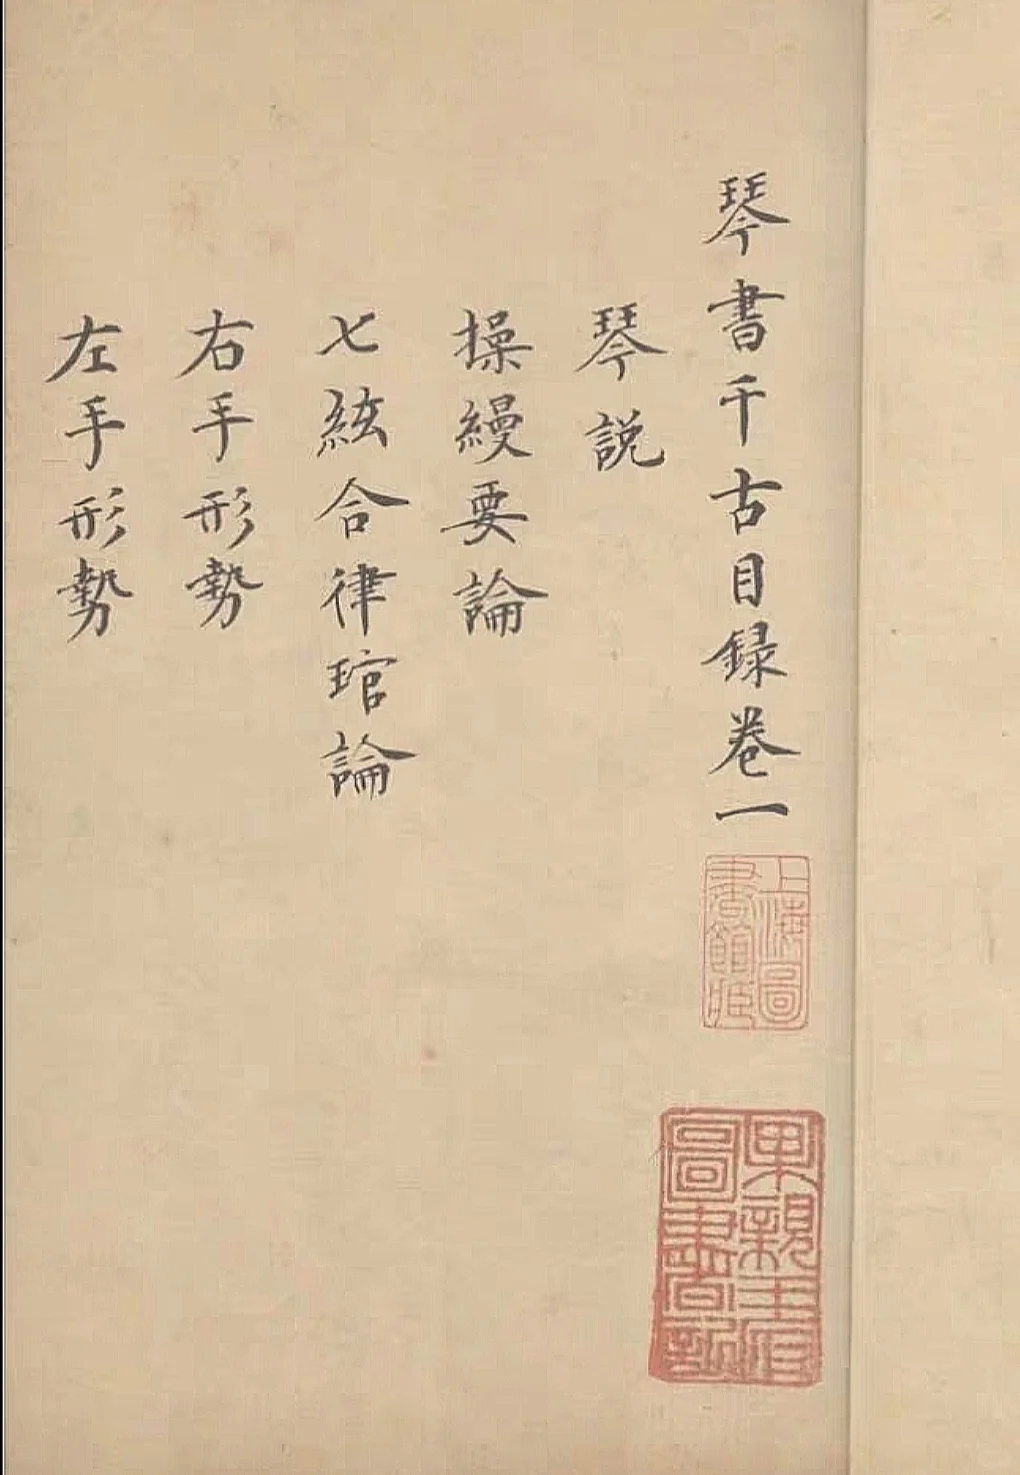 琴書千古目録卷一
琴說
操縵要論
七絃合律琯論
右手形勢
左手形勢
上海圖
書館藏
果親王府
圖書記